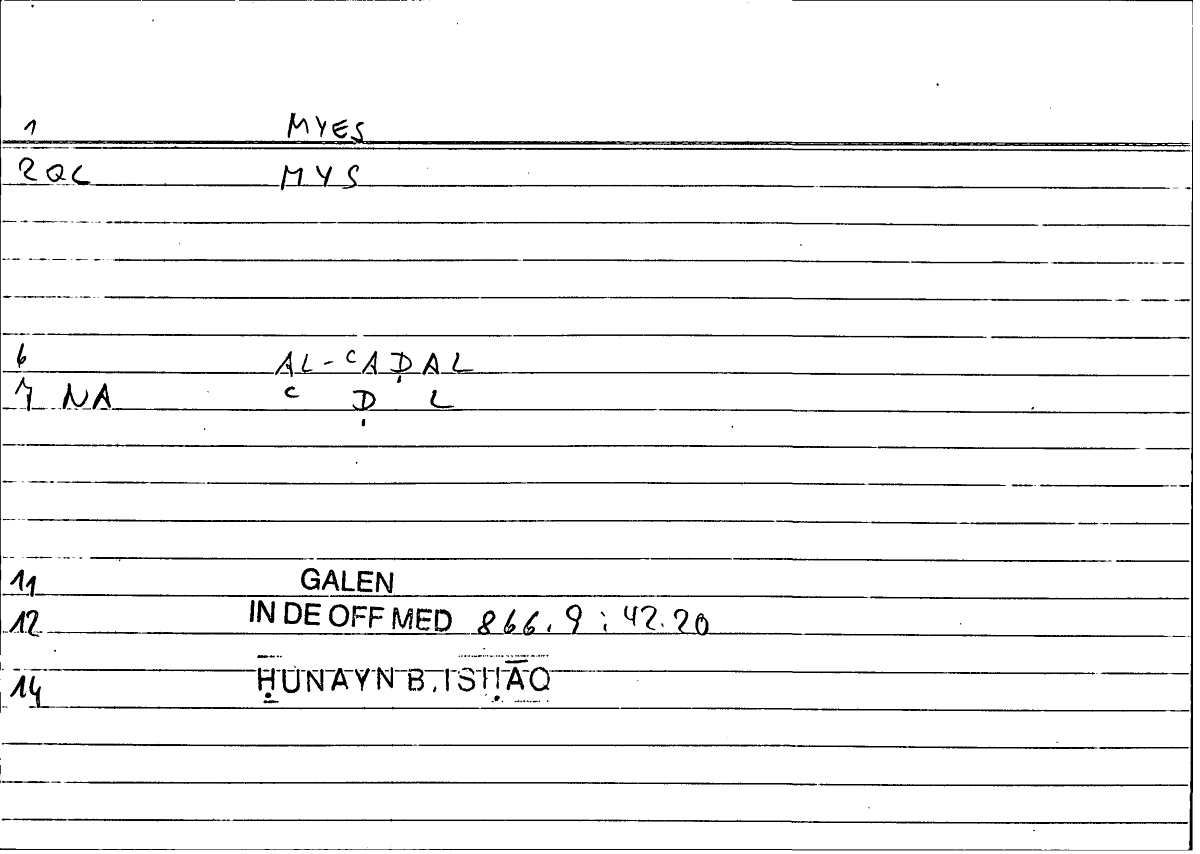 1 MYES
2 QC MYS
6 AL-ᶜAḌAL
7 NA ᶜ Ḍ L
11 GALEN
12 IN DE OFF MED 866.9 ; 42.20
14 ḤUNAYN B. ISḤĀQ